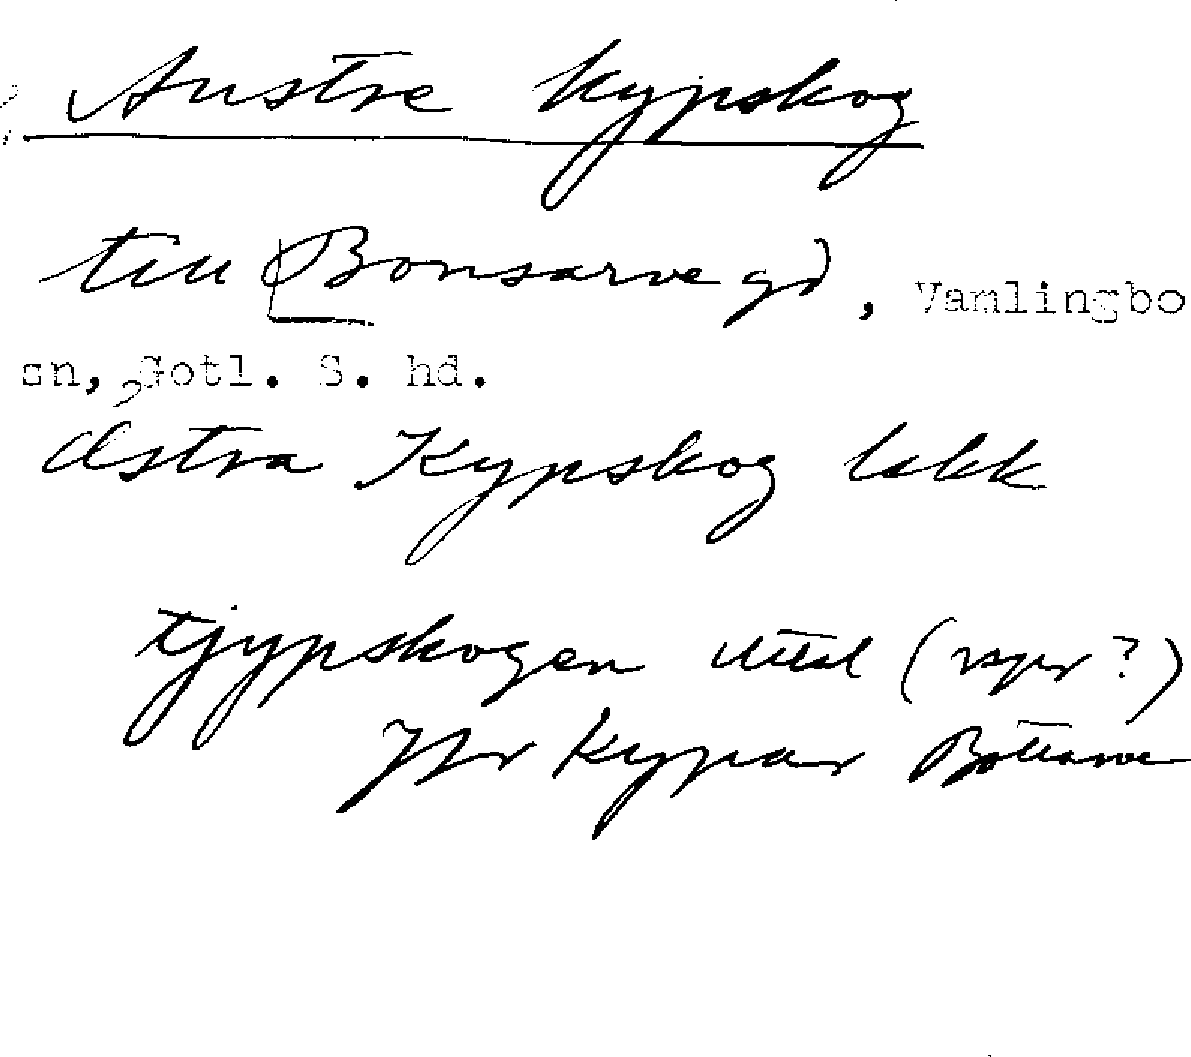 Austre kypskog
till Bonsarve gd, Vamlingbo
sn, Gotl. S. hd.
Östra Kypskog lokk
tjypskogen uttal ( ?)
Jfr Kypar Bottarve